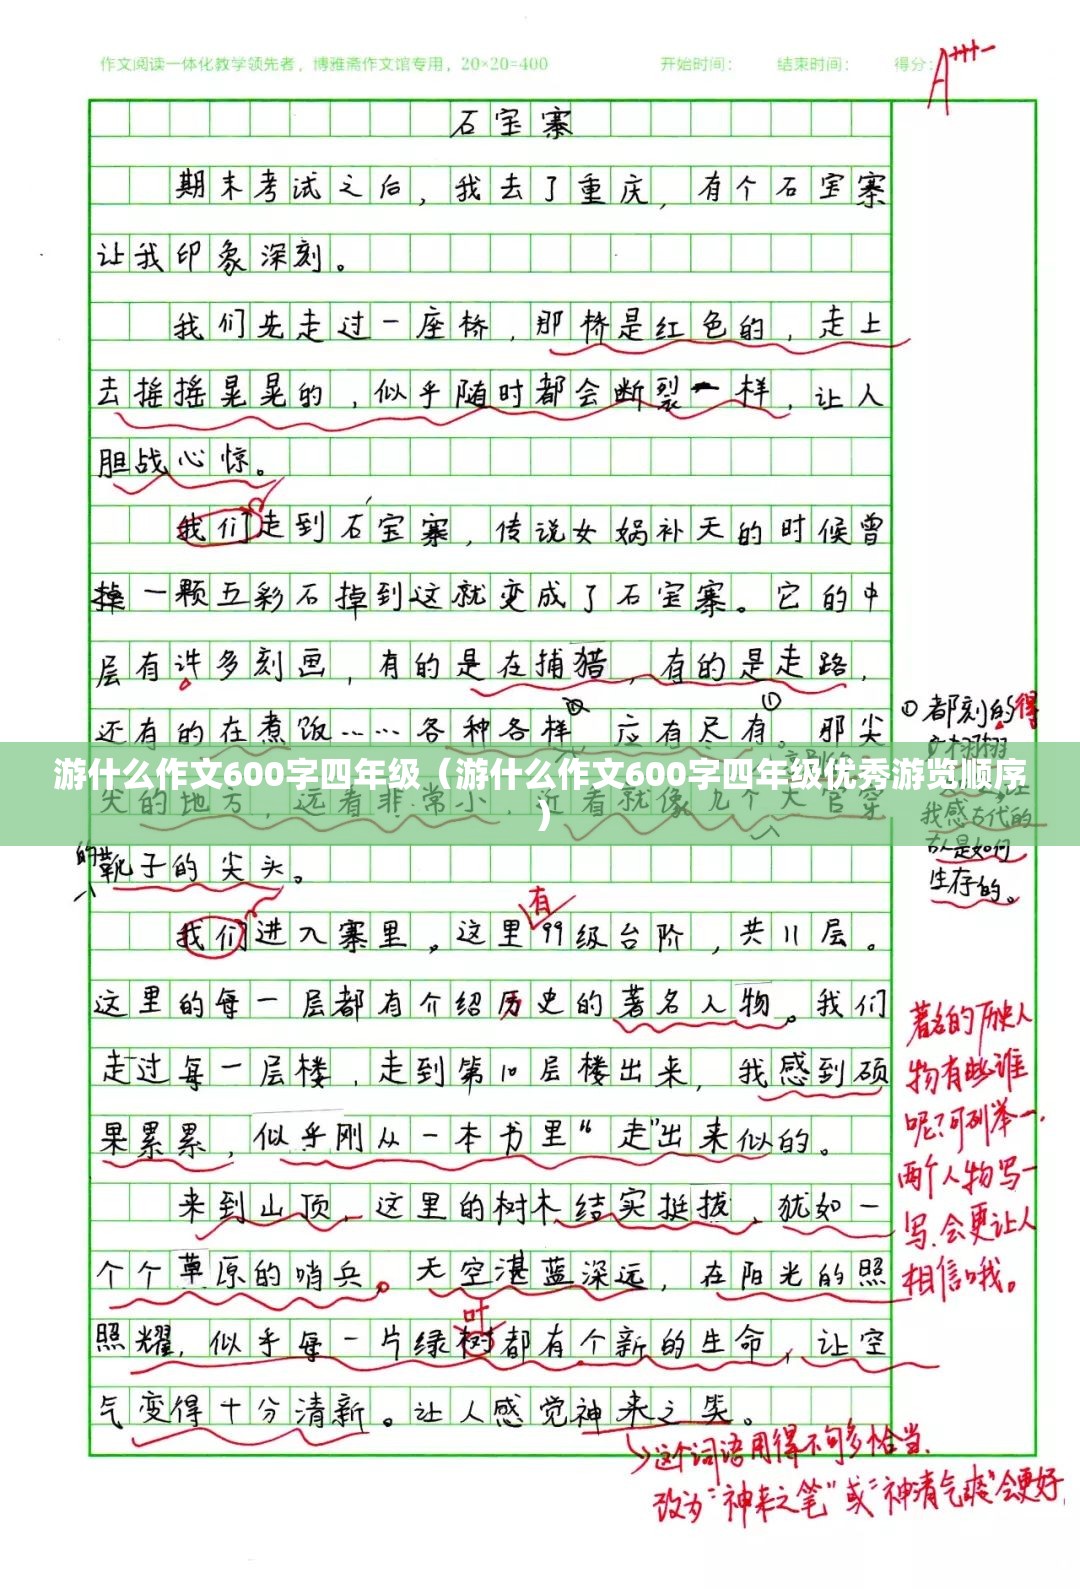 作文阅读一体化教学领先者，博雅斋作文馆专用，20×20=400 开始时间： 结束时间： 得分：
A+++-
石宝寨
期末考试之后，我去了重庆，有个石宝寨
让我印象深刻。
我们先走过一座桥，那桥是红色的，走上
去摇摇晃晃的，似乎随时都会断裂一样，让人
胆战心惊。
我们走到石宝寨，传说女娲补天的时候曾
掉一颗五彩石掉到这就变成了石宝寨。它的中
层有许多刻画，有的是在捕猎，有的是走路，
还有的在煮饭……各种各样，应有尽有。那尖
尖的地方，远看非常小，近看就像九个大官穿
的靴子的尖头。
我们进入寨里，这里有99级台阶，共11层。
这里的每一层都有介绍历史的著名人物。我们
走过每一层楼，走到第10层楼出来，我感到硕
果累累，似乎刚从一本书里“走”出来似的。
来到山顶，这里的树木结实挺拔，犹如一
个个草原的哨兵。天空湛蓝深远，在阳光的照
照耀，似乎每一片绿树都有个新的生命，让空
叶
气变得十分清新。让人感觉神来之笑。
①都刻的得
我感古代的
古人是如何
生存的。
著名的历史人
物有些谁
呢？可列举一
两个人物写一
写，会更让人
相信哦。
这个词语用得不够恰当，
改为“神来之笔”或“神清气爽”会更好
游什么作文600字四年级（游什么作文600字四年级优秀游览顺序
）